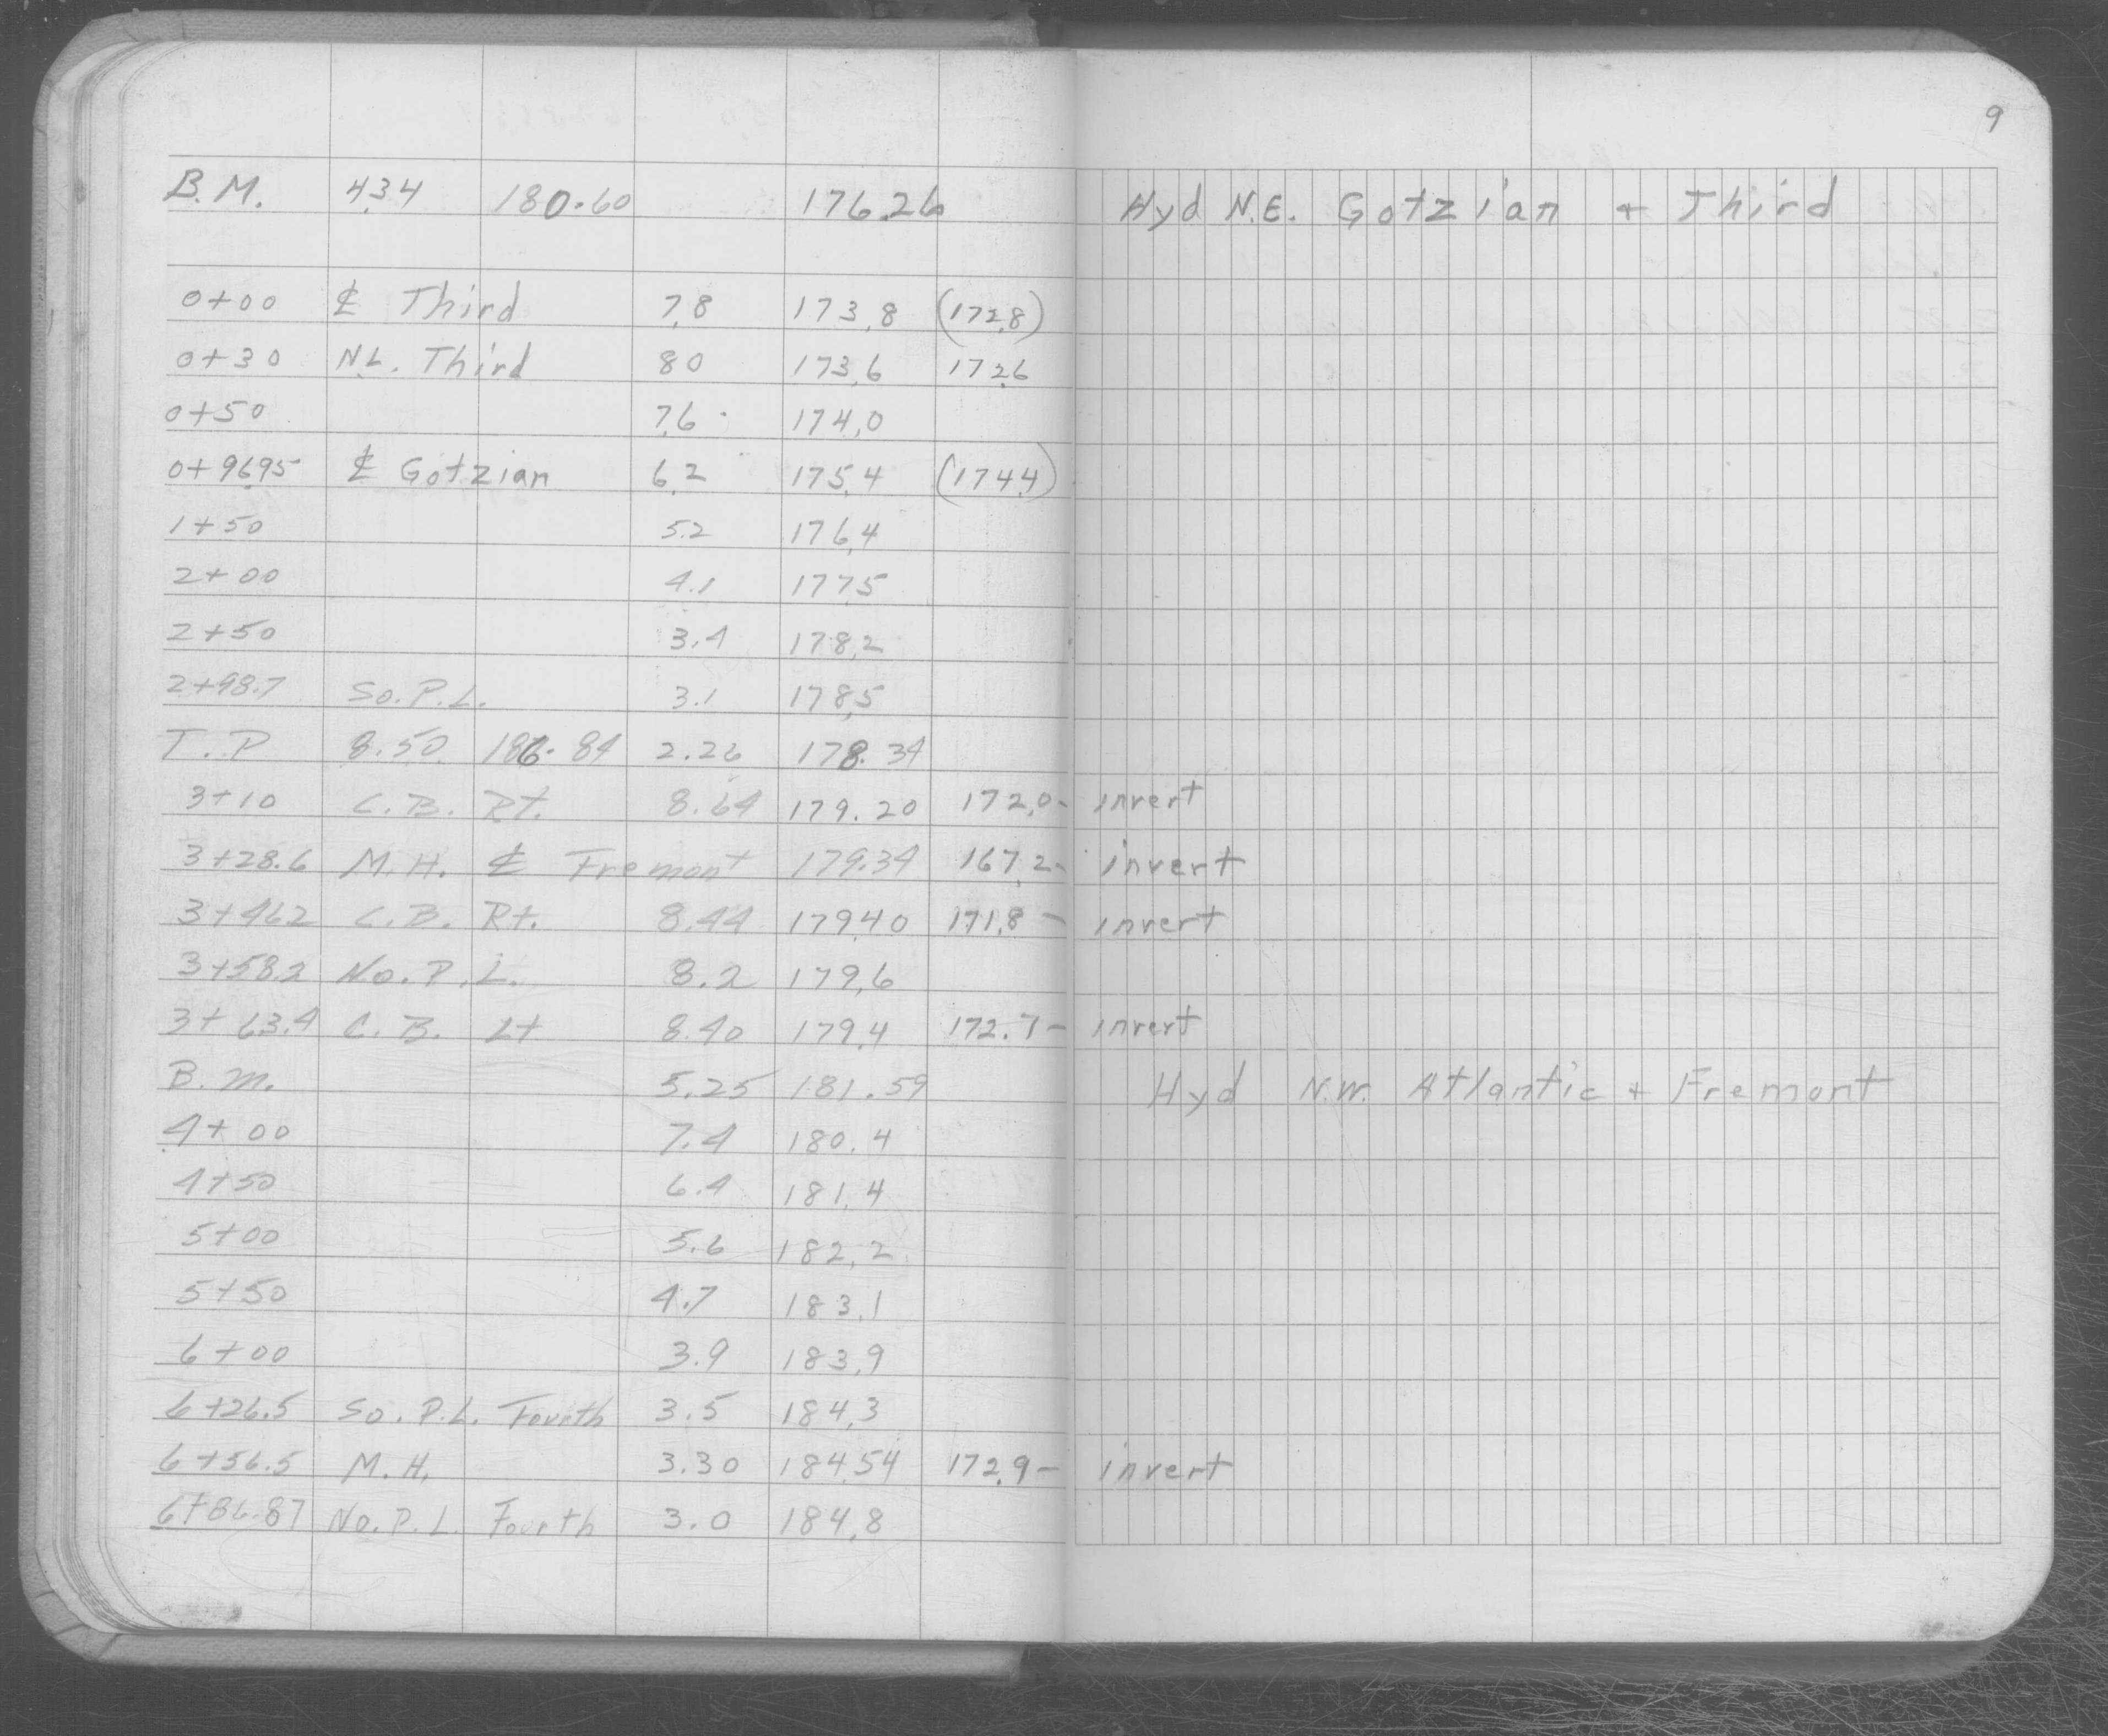 9
B.M. 4.34 180.60 176.26 Hyd N.E. Gotzian + Third
0+00 ℄ Third 7.8 173.8 (172.8)
0+30 N.L. Third 8.0 173.6 172.6
0+50 7.6 174.0
0+96.95 ℄ Gotzian 6.2 175.4 (174.4)
1+50 5.2 176.4
2+00 4.1 177.5
2+50 3.4 178.2
2+98.7 So. P.L. 3.1 178.5
T.P 8.50 186.84 2.26 178.34
3+10 C.B. Rt. 8.64 179.20 172.0- invert
3+28.6 M.H. ℄ Fremont 179.34 167.2- invert
3+46.2 C.B. Rt. 8.44 179.40 171.8- invert
3+58.2 No. P.L. 8.2 179.6
3+63.4 C.B. Lt 8.40 179.4 172.7- invert
B.M. 5.25 181.59 Hyd N.W. Atlantic + Fremont
4+00 7.4 180.4
4+50 6.4 181.4
5+00 5.6 182.2
5+50 4.7 183.1
6+00 3.9 183.9
6+26.5 So. P.L. Fourth 3.5 184.3
6+56.5 M.H. 3.30 184.54 172.9- invert
6+86.87 No. P.L. Fourth 3.0 184.8